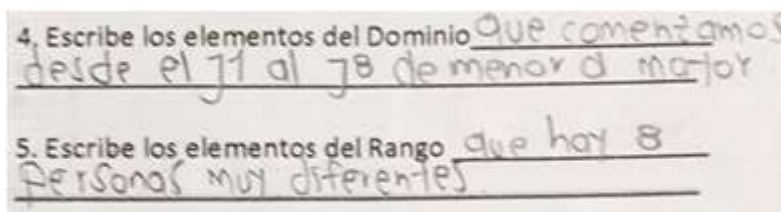 4. Escribe los elementos del Dominio que comentamos
desde el J1 al J8 de menor a mayor
5. Escribe los elementos del Rango que hay 8
personas muy diferentes